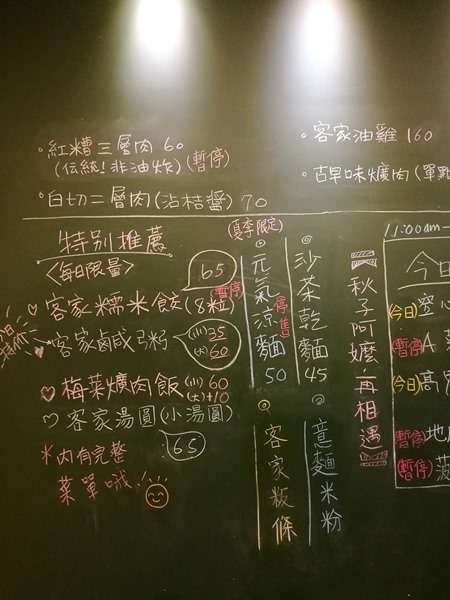 。紅糟三層肉 60
(伝統!非油炸)(暫停)
。白切二層肉(沾桔醬)70
。客家油雞 160
。古早味爌肉(單點
特別推薦
<每日限量>
客家糯米餃(8粒)
65
暫停
客家鹹粥
(小)35
(大)60
梅菜爌肉飯(小)60
(大)+10
客家湯圓(小湯圓)
65
*內有完整
菜單哦!
(夏季限定)
元氣涼麵50
停售
沙茶乾麵45
客家粄條
意麵米粉
秋子阿嬤·再相遇
11:00am-
今日
(今日)空心
(暫停)A菜
(今日)高
(暫停)地
(暫停)菠